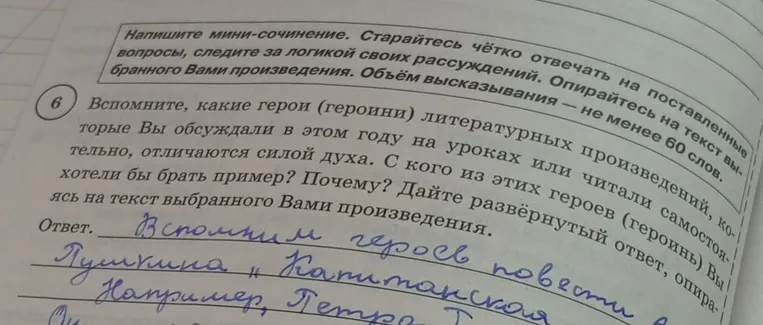 Напишите мини-сочинение. Старайтесь чётко отвечать на поставленные
вопросы, следите за логикой своих рассуждений. Опирайтесь на текст вы-
бранного Вами произведения. Объём высказывания — не менее 60 слов.
6 Вспомните, какие герои (героини) литературных произведений, ко-
торые Вы обсуждали в этом году на уроках или читали самостоя-
тельно, отличаются силой духа. С кого из этих героев (героинь) Вы
хотели бы брать пример? Почему? Дайте развёрнутый ответ, опира-
ясь на текст выбранного Вами произведения.
Ответ. Вспомним героев повести
Пушкина „Капитанская
Например, Петра